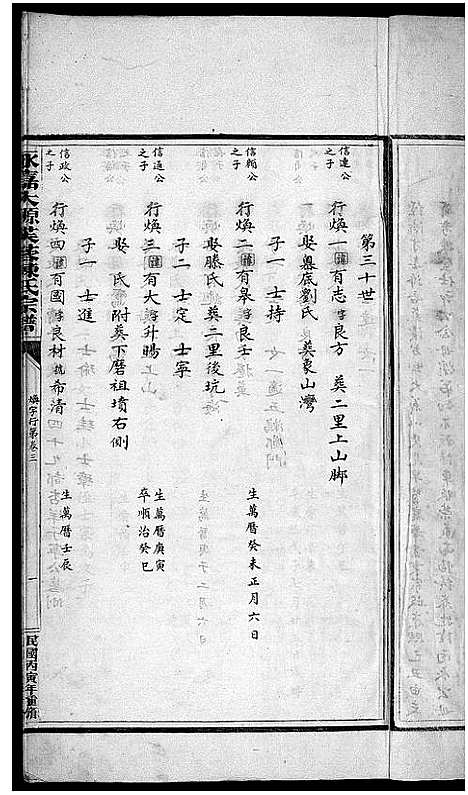 第三十世
信連公之子
行煥一諱有志字良方 葬二里上山脚
娶器底劉氏 葬象山灣
子一 士持
生萬曆癸未正月六日
信賴公之子
行煥二諱有皋字良士
娶滕氏 葬二里後坑
子二 士定 士寧
信通公之子
行煥三諱有大字升暘
生萬曆庚寅
卒順治癸巳
娶 氏 附葬下磨祖墳右側
子一 士進
信政公之子
行煥四諱有國字良材號希清
生萬曆壬辰
永嘉大源芙蓉陳氏宗譜
煥字行第卷三
一
民國丙寅年重脩